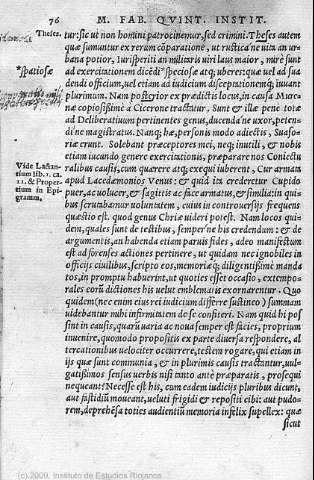 76 M. FAB. QVINT. INSTIT.
Theses.
tur: sic ut non homini patrocinemur, sed crimini. Theses autem
quæ sumuntur ex rerum cōparatione, ut rustica ne uita an ur
bana potior, Iurisperiti an militaris uiri laus maior, mirè sunt
*spatiosæ
ad exercitationem dicēdi *speciosæ atq; uberes: quæ uel ad sua
dendi officium, uel etiam ad iudiciorum disceptationem iuuant
plurimum. Nam posterior ex prædictis locus, in causa Muræ
næ copiosissimè à Cicerone tractatur. Sunt & illæ penè totæ
ad Deliberatiuum pertinentes genus, ducenda ne uxor, peten-
di ne magistratus. Namq; hæ, personis modo adiectis, Suaso-
riæ erunt. Solebant præceptores mei, neq; inutili, & nobis
etiam iucundo genere exercitationis, præparare nos Coniectu
ralibus causis, cum quærere atq; exequi iuberent, Cur armata
Vide Lactan-
tium lib. 1. ca.
& Proper-
tium in Epi
gramm.
apud Lacedæmonios Venus: & quid ita crederetur Cupido
puer, ac uolucer, & sagittis ac face armatus, & similia: in qui
bus scrutabamur uoluntatem, cuius in controuersijs frequens
quæstio est. quod genus Chriæ uideri potest. Nam locos qui-
dem, quales sunt de testibus, semper ne his credendum: & de
argumentis, an habenda etiam paruis fides, adeo manifestum
est ad forenses actiones pertinere, ut quidam nec ignobiles in
officijs ciuilibus, scripto eos, memoriæq; diligentissimè manda
tos, in promptu habuerint, ut quoties esset occasio, extempo-
rales eorū dictiones his uelut emblematis exornarentur. Quo
quidem (nec enim eius rei iudicium differre sustineo) summam
uidebantur mihi infirmitatem de se confiteri. Nam quid hi pos
sint in causis, quarū uaria ac noua semper est facies, proprium
inuenire, quomodo propositis ex parte diuersa respondere, al
tercationibus uelociter occurrere, testem rogare, qui etiam in
ijs quæ sunt communia, & in plurimis causis tractantur, uul-
gatissimos sensus uerbis nisi tanto antè præparatis, prosequi
nequeant? Necesse est his, cum eadem iudicijs pluribus dicunt,
aut fastidiū moueant, uelut frigidi & repositi cibi: aut pudo-
rem, deprehēsa toties audientiū memoria infelix supellex: quæ
sicut
(c) 2009, Instituto de Estudios Riojanos